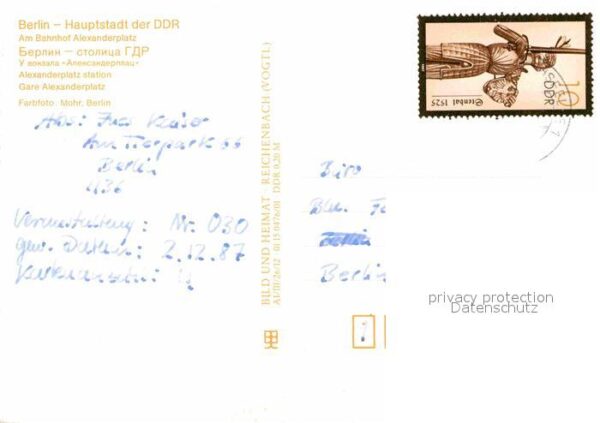 Berlin – Hauptstadt der DDR
Am Bahnhof Alexanderplatz
Берлин – столица ГДР
У вокзала «Александерплац»
Alexanderplatz station
Gare Alexanderplatz
Farbfoto: Mohr, Berlin
Abs:
Am Tierpark 66
Berlin
1136
Veranstaltung: Nr. 030
gew. Datum: 2.12.87
Kartenanzahl: 4
BILD UND HEIMAT REICHENBACH (VOGTL)
A1/III/26/12 01 15 0476/01 DDR 0,20 M
Stendal 1525
DDR
10
Büro
Berlin
Berlin
privacy protection
Datenschutz